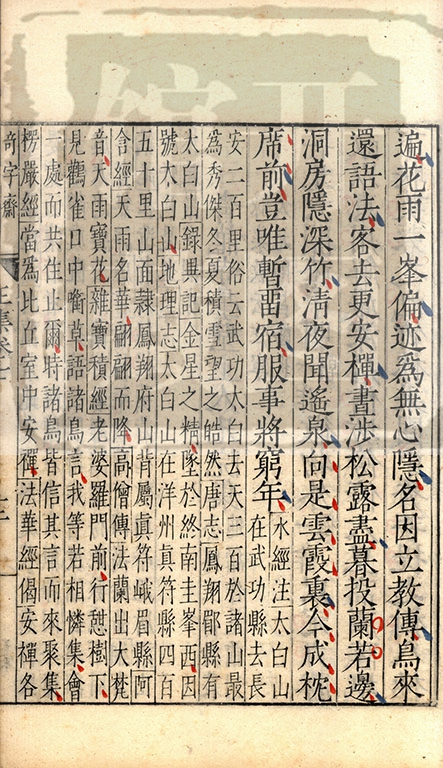 遍花雨一峯偏迹為無心隱名因立教傳鳥來
還語法客去更安禪晝涉松露盡暮投蘭若邊
洞房隱深竹淸夜聞遙泉向是雲霞裏今成枕
席前豈唯暫畱宿服事將窮年
水經注太白山
在武功縣去長
安二百里俗云武功太白去天三百於諸山最
為秀傑冬夏積雪望之皓然唐志鳳翔郿縣有
太白山錄異記金星之精墜於終南圭峯西因
號太白山地理志太白山在洋州真符縣四百
五十里山面隷鳳翔府山背屬真符峨眉縣阿
含經天雨名華翩翩而降高僧傳法蘭出大梵
音天雨寶花雜寶積經老婆羅門前行憩樹下
見鸛雀口中啣草語諸鳥言我等若相憐集會
一處而共住止爾時諸鳥皆信其言而來聚集
楞嚴經當為比丘室中安禪法華經偈安禪各
奇字齋